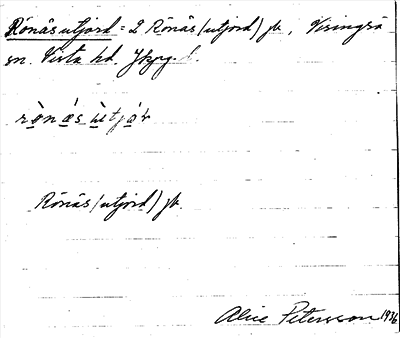 Rönäs utjord = 2 Rönäs (utjord) jb, Visingsö
sn. Vista hd. Jkpg. l.
rònäs ùtjor
Rönäs (utjord) jb.
Alice Petersson 1936